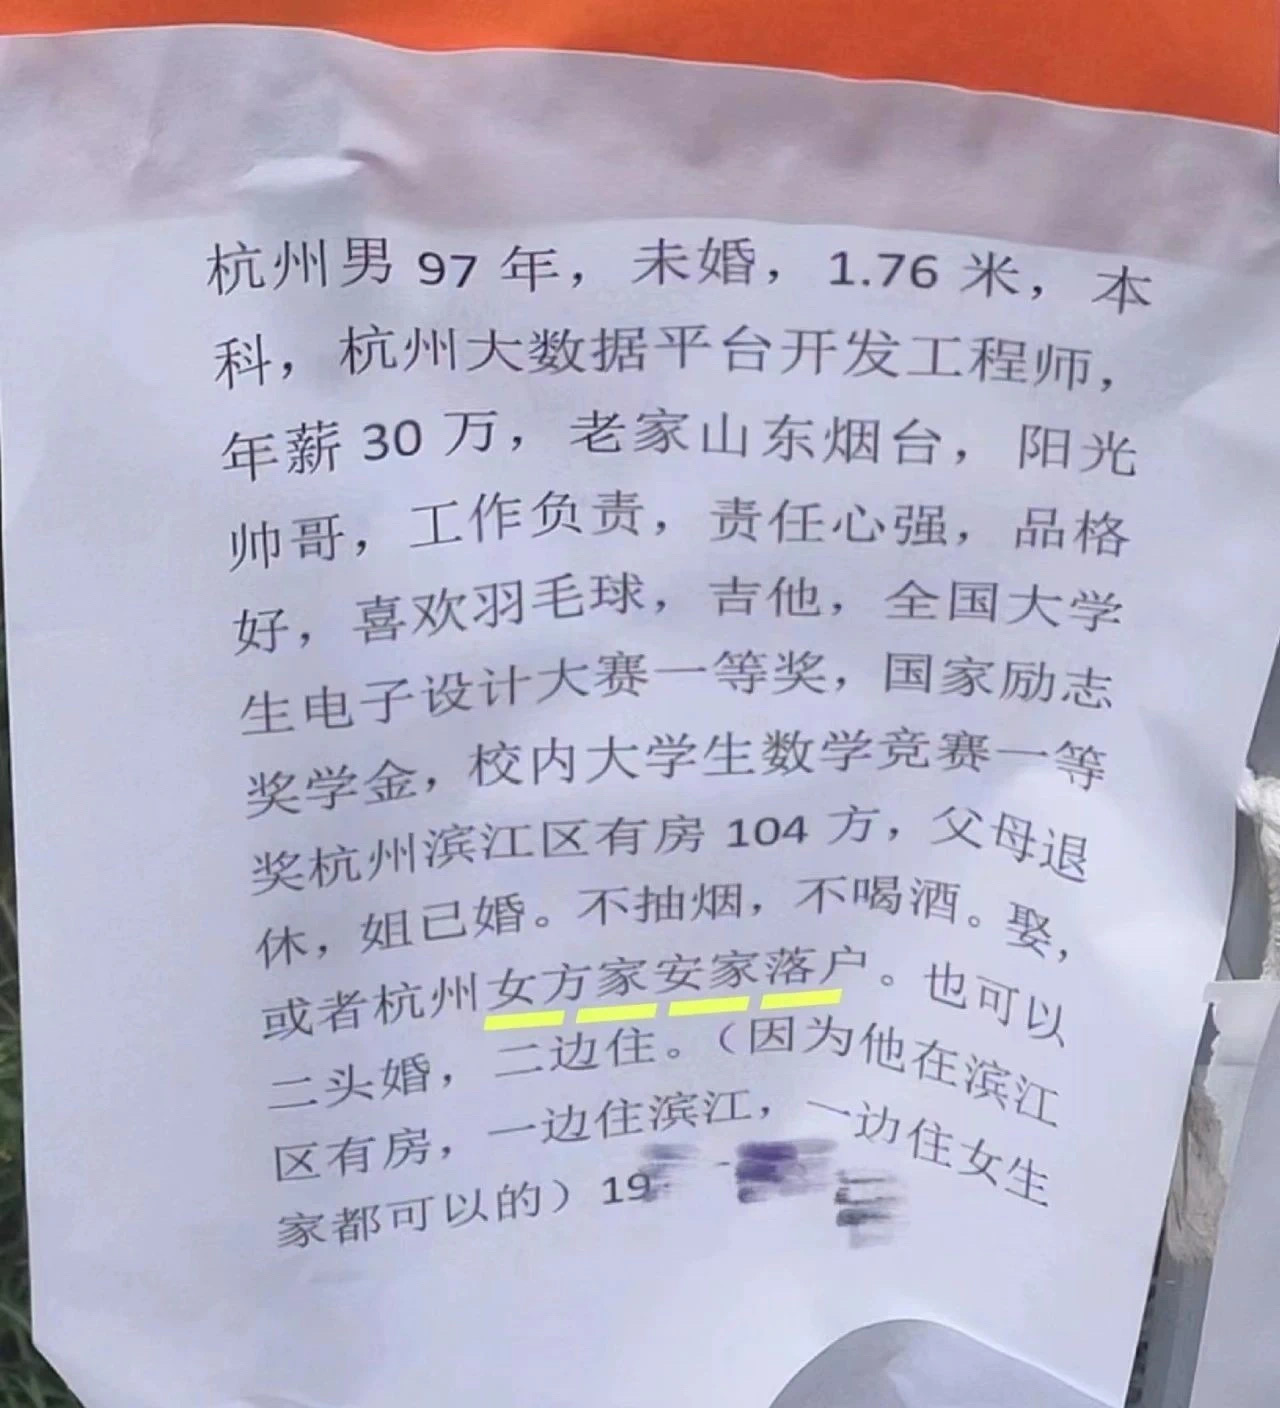 杭州男 97 年，未婚，1.76 米，本
科，杭州大数据平台开发工程师，
年薪 30 万，老家山东烟台，阳光
帅哥，工作负责，责任心强，品格
好，喜欢羽毛球，吉他，全国大学
生电子设计大赛一等奖，国家励志
奖学金，校内大学生数学竞赛一等
奖杭州滨江区有房 104 方，父母退
休，姐已婚。不抽烟，不喝酒。娶，
或者杭州女方家安家落户。也可以
二头婚，二边住。（因为他在滨江
区有房，一边住滨江，一边住女生
家都可以的）19